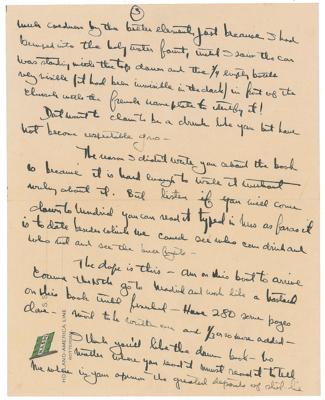 3
much condemn by the bitter element just because I had
bumped into the holy water fount, until I saw the car
was standing with the top down and the 3/4 empty bottle
very visible (it had been invisible in the dark) in front of the
church with the french name plate to identify it!
Dont want to claim to be a drunk like you but have
not become respectable
The reason I didnt write you about the book
is because it is hard enough to write it without
writing about it. But listen if you will come
down to Madrid you can read it typed in mss as far as it
is to date besides which we could see who can drink and
who cant and see the bull fights
The dope is this – Am on this boat to arrive
go to Madrid and work like a bastard
on this book until finished – Have 280 some pages
done – and to be written over and more added –
Think you'd like the damn book – no
matter where you read it must read it to tell
me where in your opinion the greatest deposits of shit lie
S.S.
HOLLAND-AMERICA LINE